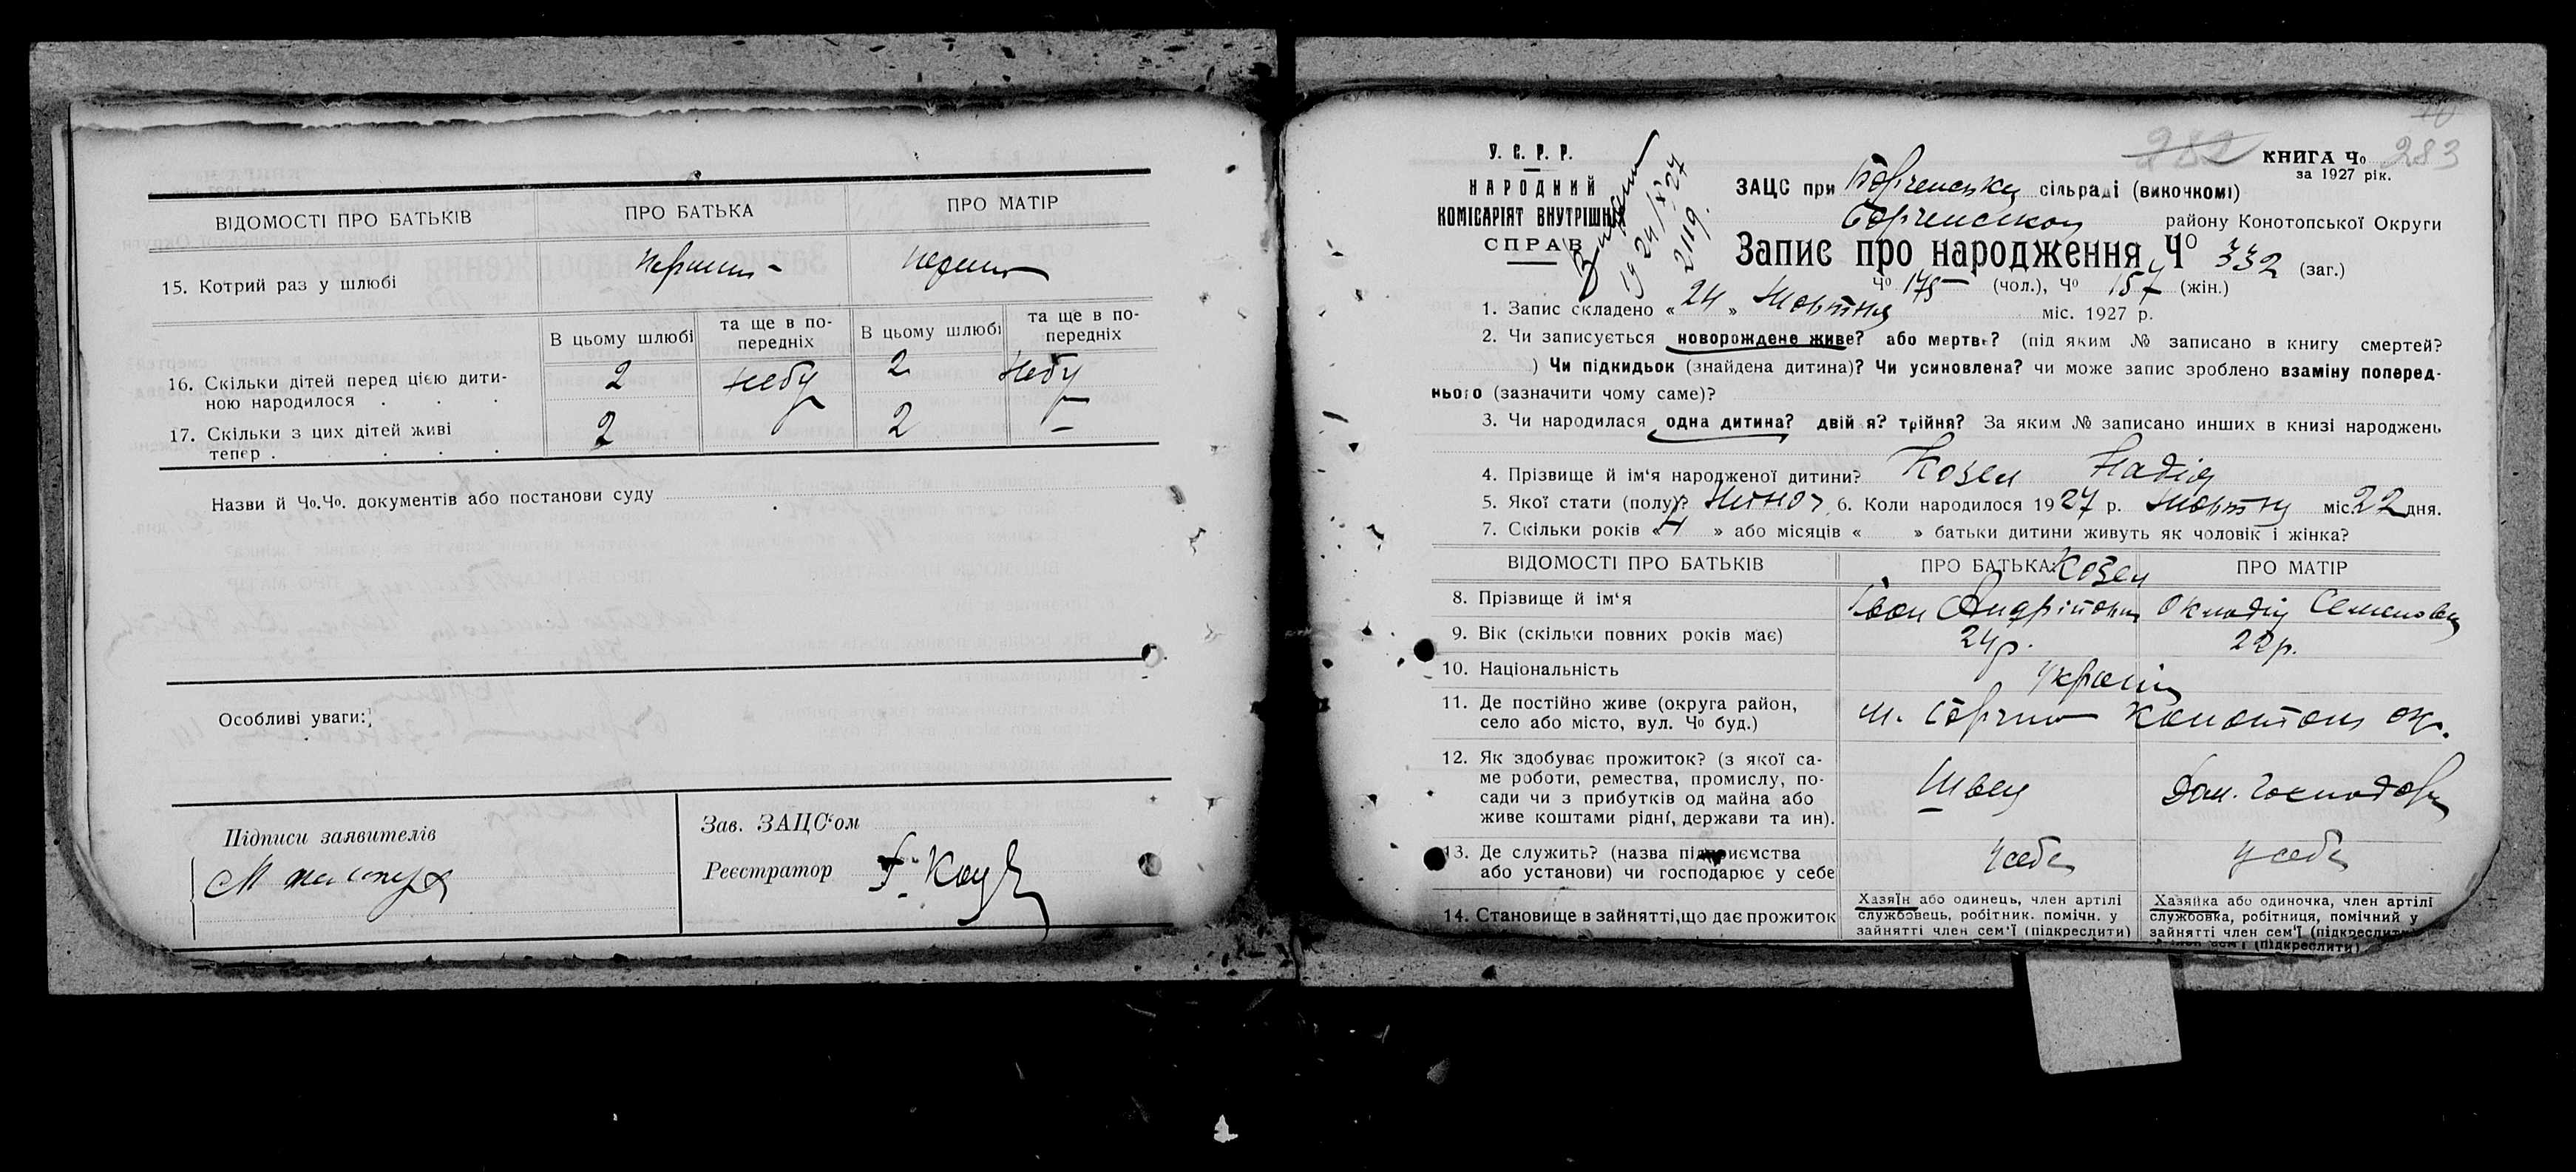 ВІДОМОСТІ ПРО БАТЬКІВ
ПРО БАТЬКА
ПРО МАТІР
15. Котрий раз у шлюбі
В цьому шлюбі
та ще в по-
передніх
В цьому шлюбі
та ще в по-
передніх
16. Скільки дітей перед цією дити-
ною народилося . . .
2
2
17. Скільки з цих дітей живі
тепер . . . . .
2
2
—
Назви й Чо.Чо. документів або постанови суду
Особливі уваги:
Підписи заявителів
Зав. ЗАЦС‘ом
Реєстратор
У. С. Р. Р.
НАРОДНИЙ
КОМІСАРІЯТ ВНУТРІШНІХ
СПРАВ
24/X 27
2119.
282
КНИГА Чо 283
за 1927 рік.
ЗАЦС при сільраді (викочкомі)
району Конотопської Округи
Запис про народження Чо 332 (заг.)
Чо 175 (чол.), Чо 157 (жін.)
1. Запис складено « 24 » Жовтня міс. 1927 р.
2. Чи записується новорождене живе? або мертве? (під яким № записано в книгу смертей?
) Чи підкидьок (знайдена дитина)? Чи усиновлена? чи може запис зроблено взаміну поперед-
нього (зазначити чому саме)?
3. Чи народилася одна дитина? двійня? трійня? За яким № записано инших в книзі народжень
4. Прізвище й ім‘я народженої дитини? Козел Надія
5. Якої стати (полу)? Жіноч 6. Коли народилося 1927 р. Жовтня міс 22 дня.
7. Скільки років « 4 » або місяців « » батьки дитини живуть як чоловік і жінка?
ВІДОМОСТІ ПРО БАТЬКІВ
ПРО БАТЬКА
ПРО МАТІР
Козел
8. Прізвище й ім‘я
Іван Андрійович
Семенівна
9. Вік (скільки повних років має)
24р.
22р.
10. Національність
Україн
11. Де постійно живе (округа район,
село або місто, вул. Чо буд.)
м. Борзна Конотоп окр.
12. Як здобуває прожиток? (з якої са-
ме роботи, ремества, промислу, по-
сади чи з прибутків од майна або
живе коштами рідні, держави та ин).
Швець
Дом. господар
13. Де служить? (назва підприємства
або установи) чи господарює у себе
У себе
У себе
14. Становище в зайнятті, що дає прожиток
Хазяїн або одинець, член артілі
службовець, робітник. помічн. у
зайнятті член сем‘ї (підкреслити)
Хазяйка або одиночка, член артілі
службовка, робітниця, помічний у
зайнятті член сем‘ї (підкреслити)